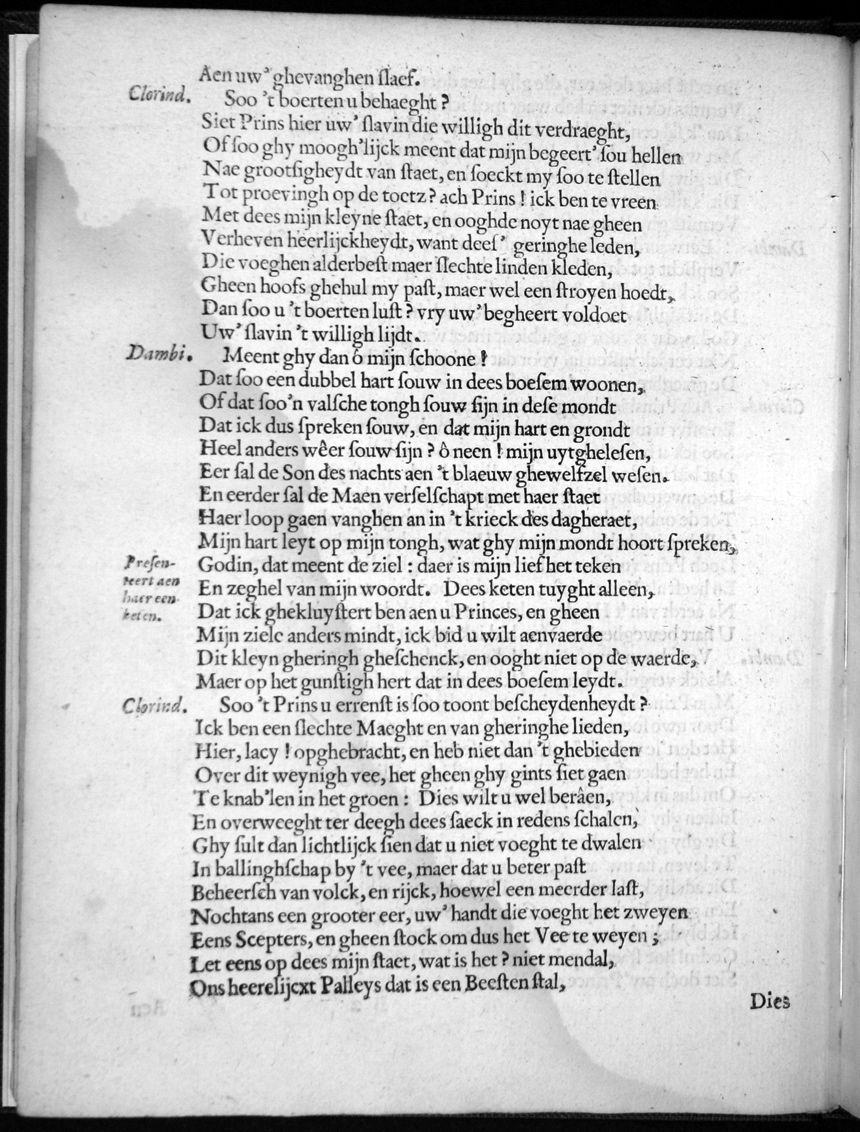 Aen uw’ ghevanghen ſlaef.
Clorind. Soo ’t boerten u behaeght ?
Siet Prins hier uw’ ſlavin die willigh dit verdraeght,
Of ſoo ghy moogh’lijck meent dat mijn begeert’ ſou hellen
Nae grootſigheydt van ſtaet, en ſoeckt my ſoo te ſtellen
Tot proevingh op de toetz? ach Prins ! ick ben te vreen
Met dees mijn kleyne ſtaet, en ooghde noyt nae gheen
Verheven heerlijckheydt, want deeſ’ geringhe leden,
Die voeghen alderbeſt maer ſlechte linden kleden,
Gheen hoofs ghehul my paſt, maer wel een ſtroyen hoedt,
Dan ſoo u ’t boerten luſt ? vry uw’ begheert voldoet
Uw’ ſlavin ’t willigh lijdt.
Dambi. Meent ghy dan ô mijn ſchoone !
Dat ſoo een dubbel hart ſouw in dees boeſem woonen,
Of dat ſoo’n valſche tongh ſouw ſijn in deſe mondt
Dat ick dus ſpreken ſouw, en dat mijn hart en grondt
Heel anders wêer ſouw ſijn ? ô neen ! mijn uytgheleſen,
Eer ſal de Son des nachts aen ’t blaeuw ghewelfzel weſen.
En eerder ſal de Maen verſelſchapt met haer ſtaet
Haer loop gaen vanghen an in ’t krieck des dagheraet,
Mijn hart leyt op mijn tongh, wat ghy mijn mondt hoort ſpreken,
Godin, dat meent de ziel : daer is mijn lief het teken
En zeghel van mijn woordt. Dees keten tuyght alleen,
Dat ick ghekluyſtert ben aen u Princes, en gheen
Mijn ziele anders mindt, ick bid u wilt aenvaerde
Dit kleyn gheringh gheſchenck, en ooght niet op de waerde,
Maer op het gunſtigh hert dat in dees boeſem leydt.
Preſen-
teert aen
haer een
keten.
Clorind. Soo ’t Prins u errenſt is ſoo toont beſcheydenheydt ?
Ick ben een ſlechte Maeght en van gheringhe lieden,
Hier, lacy ! opghebracht, en heb niet dan ’t ghebieden
Over dit weynigh vee, het gheen ghy gints ſiet gaen
Te knab’len in het groen : Dies wilt u wel berâen,
En overweeght ter deegh dees ſaeck in redens ſchalen,
Ghy ſult dan lichtlijck ſien dat u niet voeght te dwalen
In ballinghſchap by ’t vee, maer dat u beter paſt
Beheerſch van volck, en rijck, hoewel een meerder laſt,
Nochtans een grooter eer, uw’ handt die voeght het zweyen
Eens Scepters, en gheen ſtock om dus het Vee te weyen ;
Let eens op dees mijn ſtaet, wat is het ? niet mendal,
Ons heerelijcxt Palleys dat is een Beeſten ſtal,
Dies